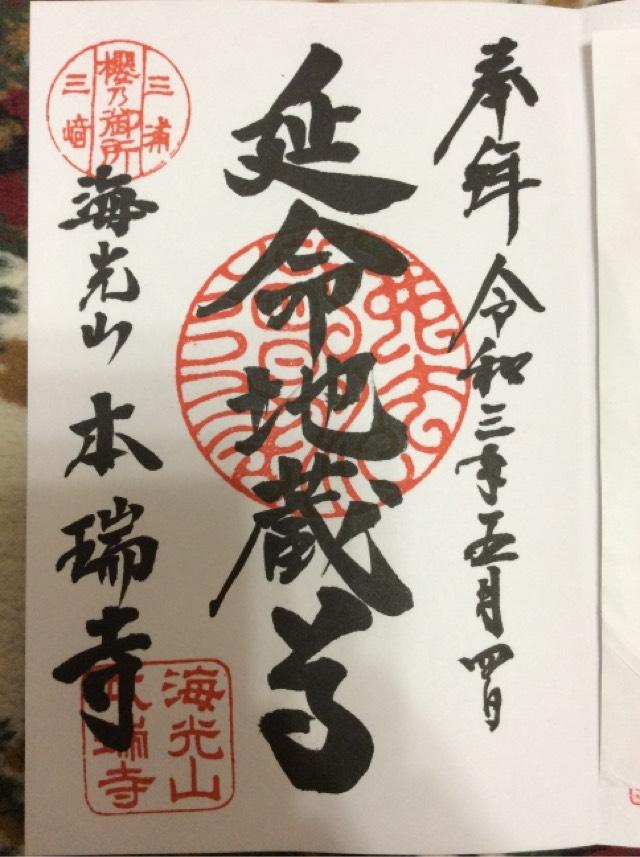 奉拝 令和三年五月四日
延命地蔵尊
三浦
櫻乃御所
三崎
海光山 本瑞寺
海光山
本瑞寺